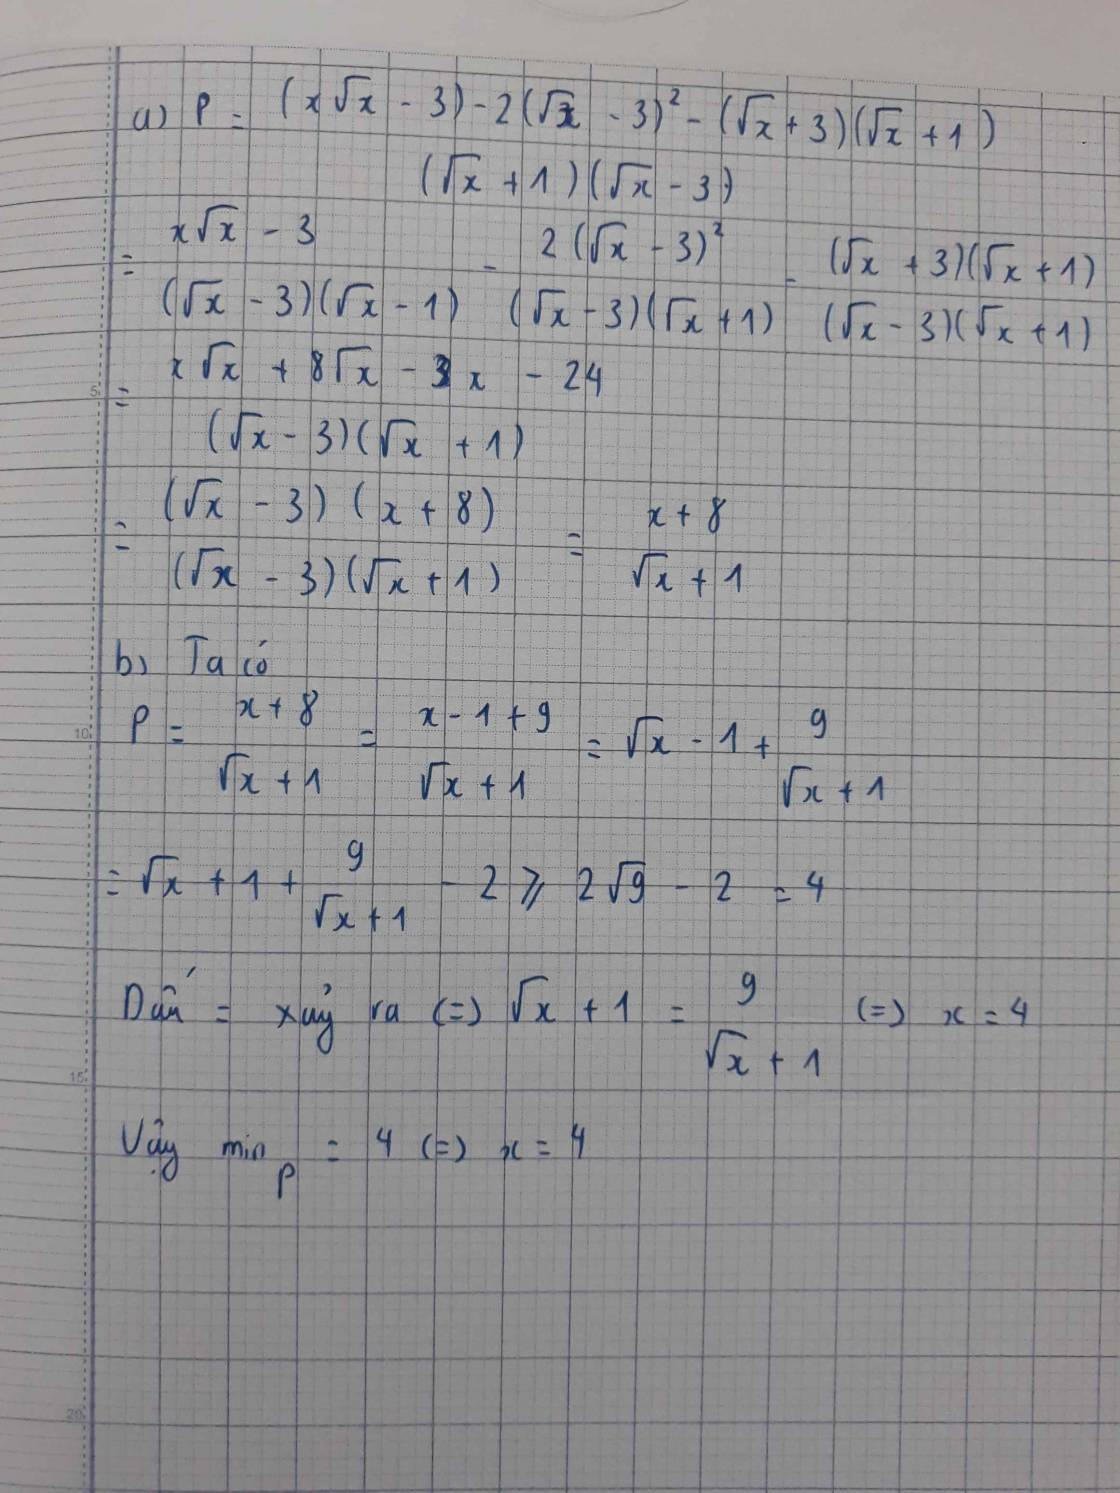 a) P = (x√x - 3) - 2(√x - 3)² - (√x + 3)(√x + 1)
(√x + 1)(√x - 3)
= x√x - 3 - 2(√x - 3)² - (√x + 3)(√x + 1)
(√x - 3)(√x - 1) (√x - 3)(√x + 1) (√x - 3)(√x + 1)
= x√x + 8√x - 3x - 24
(√x - 3)(√x + 1)
= (√x - 3)(x + 8) = x + 8
(√x - 3)(√x + 1) √x + 1
b) Ta có
P = x + 8 = x - 1 + 9 = √x - 1 + 9
√x + 1 √x + 1 √x + 1
= √x + 1 + 9 - 2 ⩾ 2√9 - 2 = 4
√x + 1
Dấu = xảy ra (=) √x + 1 = 9 (=) x = 4
√x + 1
Vậy min P = 4 (=) x = 4
5
10
15
20